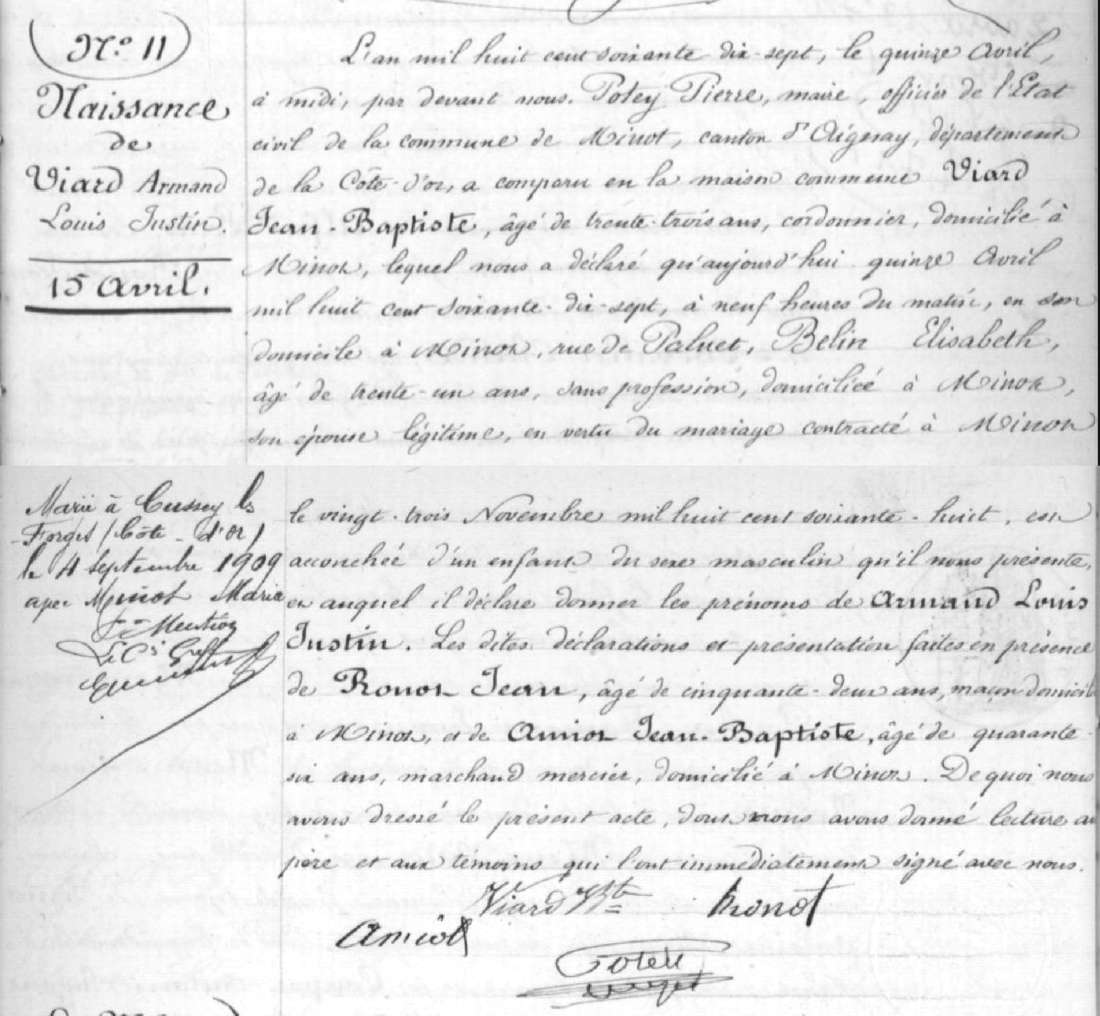 N.o 11
Naissance
de
Viard Armand
Louis Justin.
15 Avril.
L'an mil huit cent soixante dix-sept, le quinze Avril,
à midi, par devant nous. Potey Pierre, maire, officier de l'Etat
civil de la commune de Minot, canton d'Aignay, département
de la Côte-d'or, a comparu en la maison commune Viard
Jean-Baptiste, âgé de trente-trois ans, cordonnier, domicilié à
Minot, lequel nous a déclaré qu'aujourd'hui quinze Avril
mil huit cent soixante-dix-sept, à neuf heures du matin, en son
domicile à Minot, rue de Paluet, Belin Elisabeth,
âgé de trente-un ans, sans profession, domiciliée à Minot,
son épouse légitime, en vertu du mariage contracté à Minot
Marié à Cussey les
Forges (Côte-d'or)
le 4 septembre 1909
avec Minot Marie
Pr Mention
Le Cs Greff
le vingt-trois Novembre mil huit cent soixante-huit, est
accouchée d'un enfant du sexe masculin qu'il nous présente,
et auquel il déclare donner les prénoms de Armand Louis
Justin. Les dites déclarations et présentation faites en présence
de Ronot Jean, âgé de cinquante-deux ans, maçon domicilié
à Minot, et de Amiot Jean-Baptiste, âgé de quarante-
six ans, marchand mercier, domicilié à Minot. De quoi nous
avons dressé le présent acte, dont nous avons donné lecture au
père et aux témoins qui l'ont immédiatement signé avec nous.
Viard Jbte Ronot
Amiot
Potey